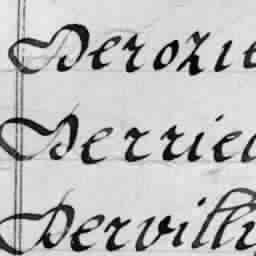 Derozie
Derried
Dervilly